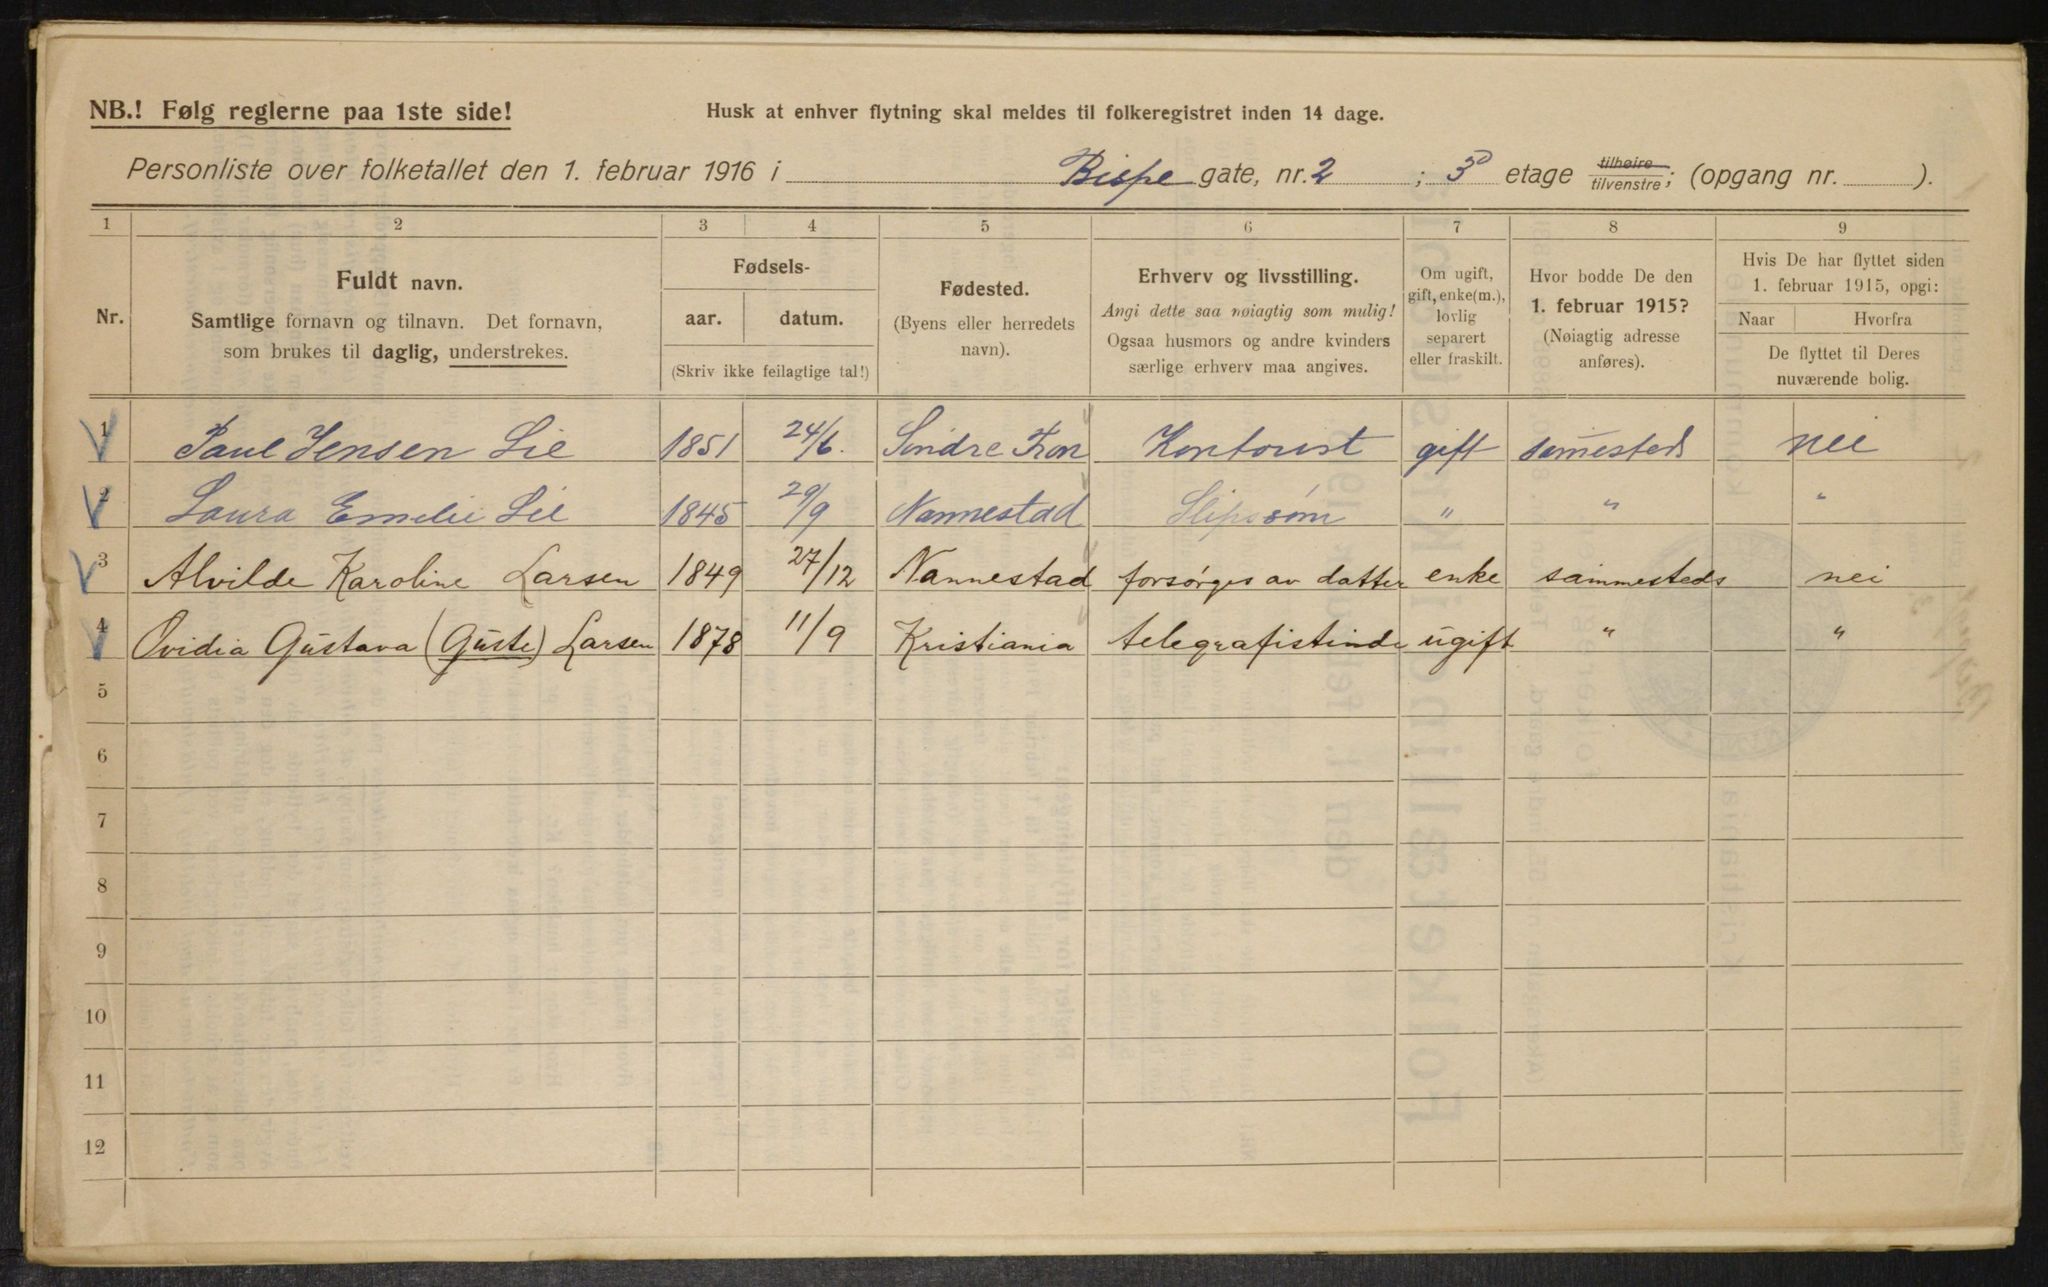 NB.! Følg reglerne paa 1ste side!
Husk at enhver flytning skal meldes til folkeregistret inden 14 dage.
Personliste over folketallet den 1. februar 1916 i Bispe gate, nr. 2 ; 3 etage tilhøire tilvenstre; (opgang nr. ).
1 2 3 4 5 6 7 8 9
Nr.
Fuldt navn.
Samtlige fornavn og tilnavn. Det fornavn,
som brukes til daglig, understrekes.
Fødsels-
aar. datum.
(Skriv ikke feilagtige tal!)
Fødested.
(Byens eller herredets
navn).
Erhverv og livsstilling.
Angi dette saa nøiagtig som mulig!
Ogsaa husmors og andre kvinders
særlige erhverv maa angives.
Om ugift,
gift, enke(m.),
lovlig
separert
eller fraskilt.
Hvor bodde De den
1. februar 1915?
(Nøiagtig adresse
anføres).
Hvis De har flyttet siden
1. februar 1915, opgi:
Naar Hvorfra
De flyttet til Deres
nuværende bolig.
1 Paul Jensen Lie 1851 24/6. Søndre Fron Kontorist gift sammesteds nei
2 Laura Emelie Lie 1845 29/9 Nannestad Slipssøm " " "
3 Alvilde Karoline Larsen 1849 27/12 Nannestad forsørges av datter enke sammesteds nei
4 Ovidia Gustava (Guste) Larsen 1878 11/9 Kristiania telegrafistinde ugift " "
5
6
7
8
9
10
11
12